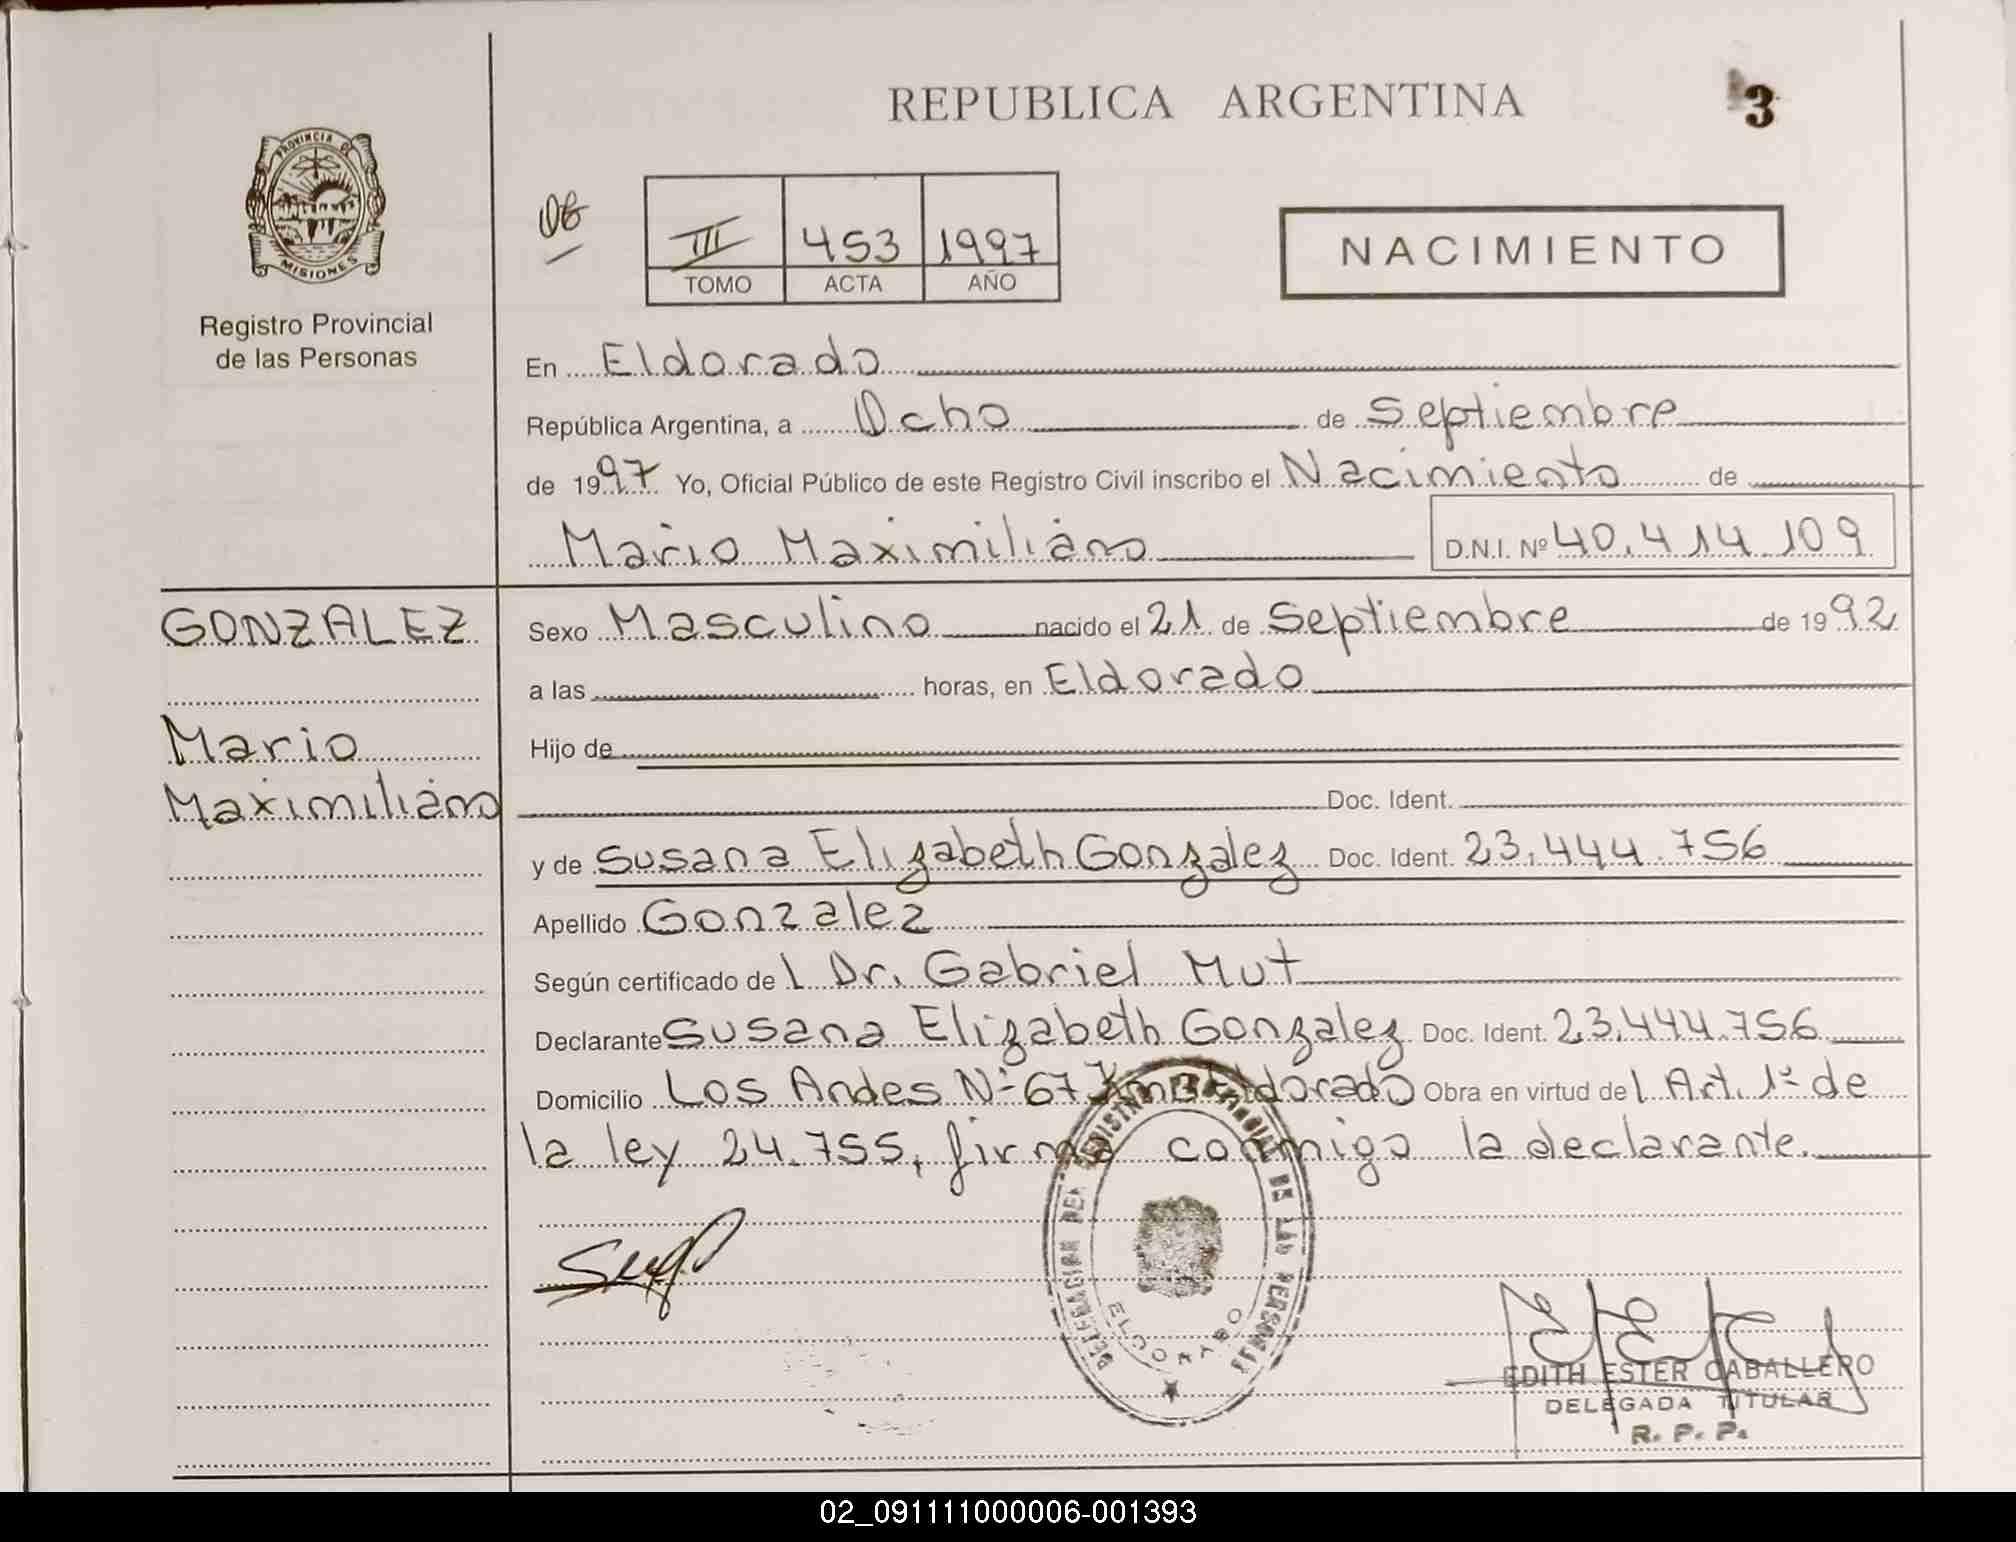 REPUBLICA ARGENTINA
3
PROVINCIA DE
MISIONES
Registro Provincial
de las Personas
III 453 1997
TOMO ACTA AÑO
NACIMIENTO
En Eldorado
República Argentina, a Ocho de Septiembre
de 1997 Yo, Oficial Público de este Registro Civil inscribo el Nacimiento de
Mario Maximiliano D.N.I. Nº 40.414.109
GONZALEZ
Mario
Maximiliano
Sexo Masculino nacido el 21 de Septiembre de 1992
a las horas, en Eldorado
Hijo de
Doc. Ident.
y de Susana Elizabeth Gonzalez Doc. Ident. 23.444.756
Apellido Gonzalez
Según certificado de l Dr. Gabriel Mut
Declarante Susana Elizabeth Gonzalez Doc. Ident. 23.444.756
Domicilio Los Andes Nº 67 Eldorado Obra en virtud de l Art. 1º de
la ley 24.755, firma conmigo la declarante.
DELEGACION DEL REGISTRO PROVINCIAL DE LAS PERSONAS
ELDORADO
EDITH ESTER CABALLERO
DELEGADA TITULAR
R. P. P.
02_091111000006-001393